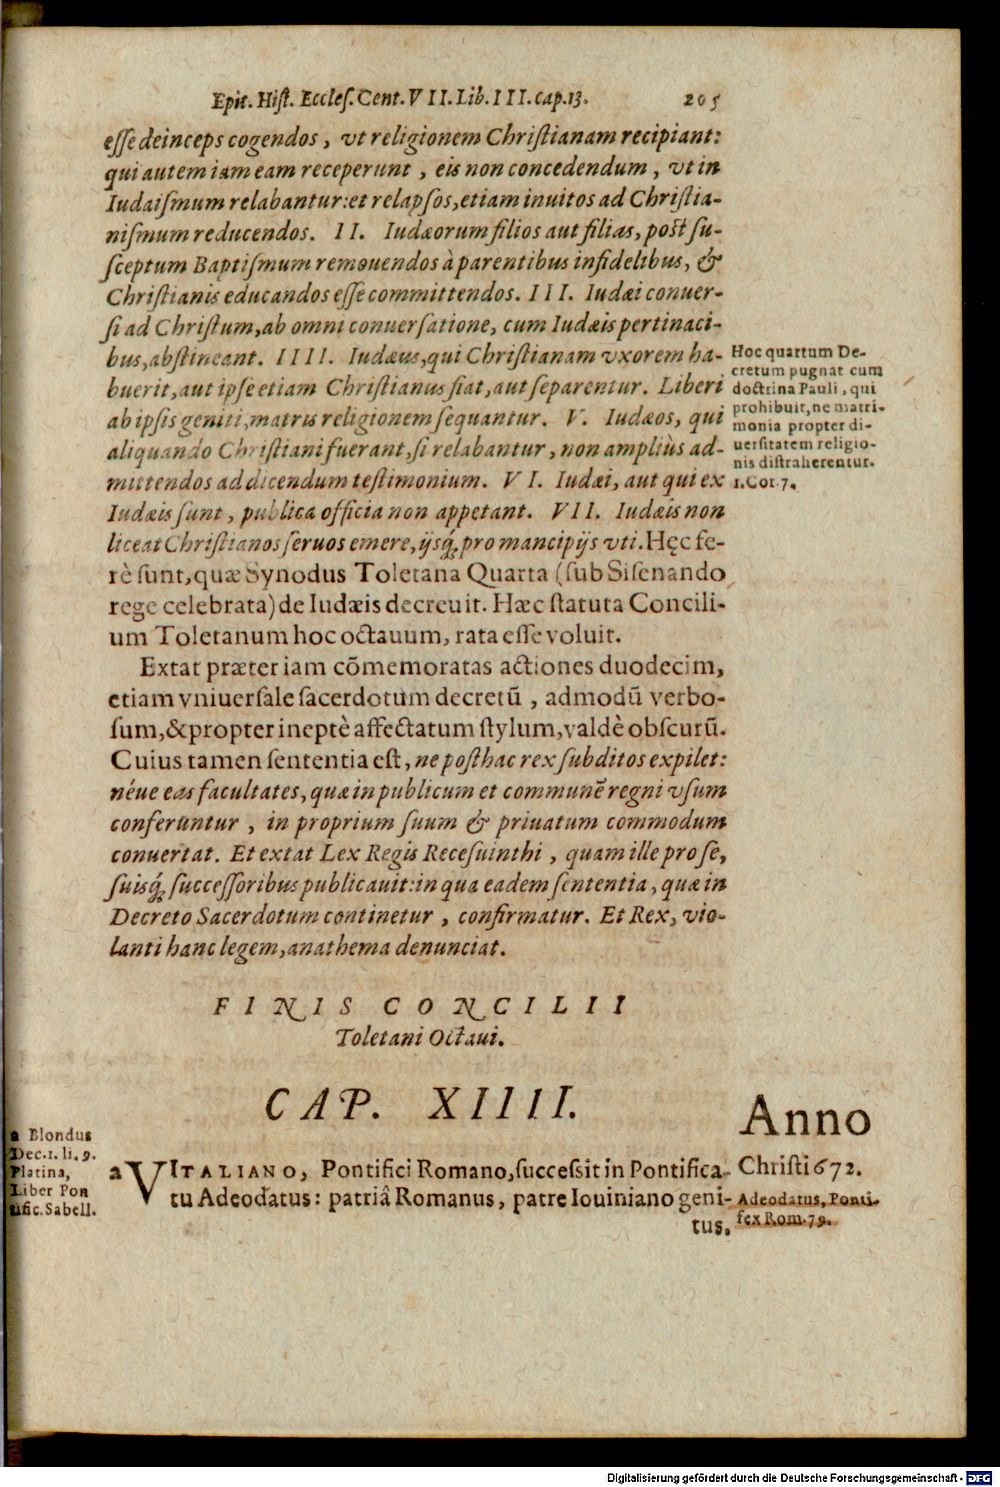 Epit. Hist. Eccles. Cent. VII. Lib. III. cap. 13. 205
esse deinceps cogendos, vt religionem Christianam recipiant:
qui autem iam eam receperunt, eis non concedendum, vt in
Iudaismum relabantur: et relapsos, etiam inuitos ad Christia-
nismum reducendos. II. Iudæorum filios aut filias, post su-
sceptum Baptismum remouendos à parentibus infidelibus, &
Christianis educandos esse committendos. III. Iudæi conuer-
si ad Christum, ab omni conuersatione, cum Iudæis pertinaci-
bus, abstineant. IIII. Iudæus, qui Christianam vxorem ha-
buerit, aut ipse etiam Christianus fiat, aut separentur. Liberi
ab ipsis geniti, matris religionem sequantur. V. Iudæos, qui
aliquando Christiani fuerant, si relabantur, non ampliùs ad-
mittendos ad dicendum testimonium. VI. Iudæi, aut qui ex
Iudæis sunt, publica officia non appetant. VII. Iudæis non
liceat Christianos seruos emere, ijsq́; pro mancipijs vti. Hęc fe-
rè sunt, quæ Synodus Toletana Quarta (sub Sisenando
rege celebrata) de Iudæis decreuit. Hæc statuta Concili-
um Toletanum hoc octauum, rata esse voluit.
Hoc quartum De-
cretum pugnat cum
doctrina Pauli, qui
prohibuit, ne matri-
monia propter di-
uersitatem religio-
nis distraherentur.
1. Cor. 7.
Extat præter iam cõmemoratas actiones duodecim,
etiam vniuersale sacerdotum decretũ, admodũ verbo-
sum, & propter ineptè affectatum stylum, valdè obscurũ.
Cuius tamen sententia est, ne posthac rex subditos expilet:
néue eas facultates, quæ in publicum et communẽ regni vsum
conferuntur, in proprium suum & priuatum commodum
conuertat. Et extat Lex Regis Recesuinthi, quam ille pro se,
suisq́; successoribus publicauit: in qua eadem sententia, quæ in
Decreto Sacerdotum continetur, confirmatur. Et Rex, vio-
lanti hanc legem, anathema denunciat.
FINIS CONCILII
Toletani Octaui.
CAP. XIIII.
a Blondus
Dec. 1. li. 9.
Platina,
Liber Pon
tific. Sabell.
a VITALIANO, Pontifici Romano, successit in Pontifica-
tu Adeodatus: patriâ Romanus, patre Iouiniano geni-
tus.
Anno
Christi 672.
Adeodatus, Ponti-
fex Rom. 79.
Digitalisierung gefördert durch die Deutsche Forschungsgemeinschaft - DFG